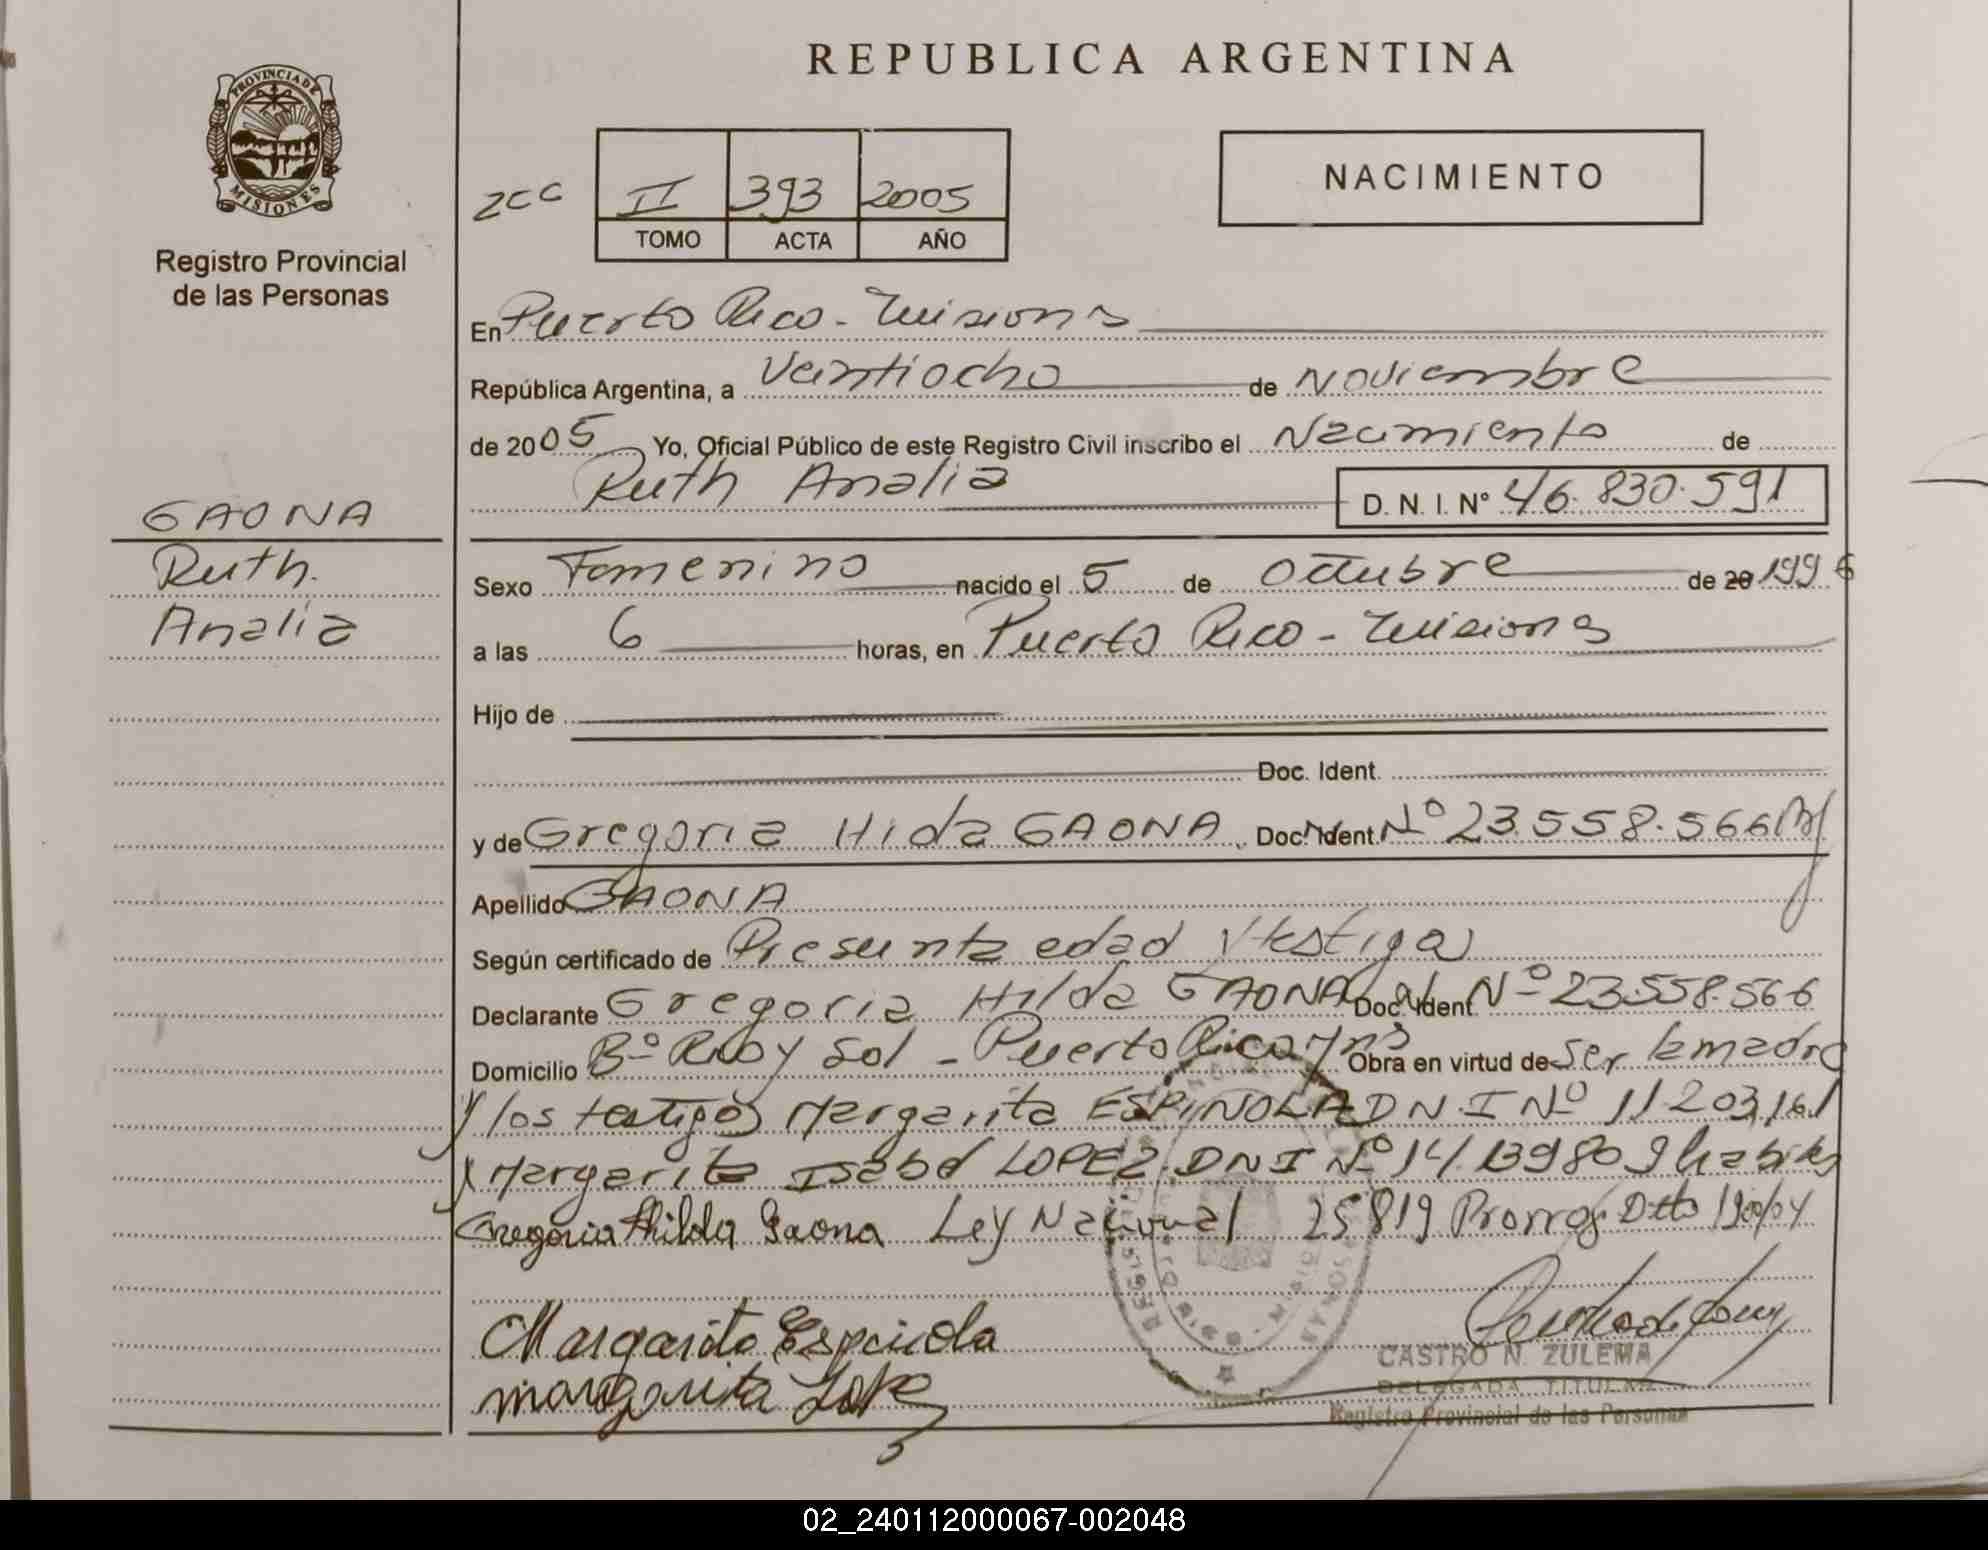 REPUBLICA ARGENTINA
PROVINCIA DE MISIONES
Registro Provincial
de las Personas
NACIMIENTO
zcc II 393 2005
TOMO ACTA AÑO
En Puerto Rico - Misiones
República Argentina, a Veintiocho de Noviembre
de 2005 Yo, Oficial Público de este Registro Civil inscribo el Nacimiento de
Ruth Analia D. N. I. N° 46.830.591
GAONA
Ruth
Analia
Sexo Femenino nacido el 5 de Octubre de 20 1996
a las 6 horas, en Puerto Rico - Misiones
Hijo de
Doc. Ident.
y de Gregoria Hilda GAONA Doc. Ident. N° 23.558.566
Apellido GAONA
Según certificado de Presunta edad y testigo
Declarante Gregoria Hilda GAONA Doc. Ident N° 23.558.566
Domicilio B° Rio y Sol - Puerto Rico Mns Obra en virtud de ser la madre
y los testigos Margarita ESPINOLA D N I N° 11.203.161
y Margarita Isabel LOPEZ DNI N° 14.139.809 habiles
Gregoria Hilda Gaona Ley Nacional 25819 Prorrog. Dtto 190/04
Margarita Espinola
margarita Lopez
CASTRO N. ZULEMA
DELEGADA TITULAR
Registro Provincial de las Personas
02_240112000067-002048